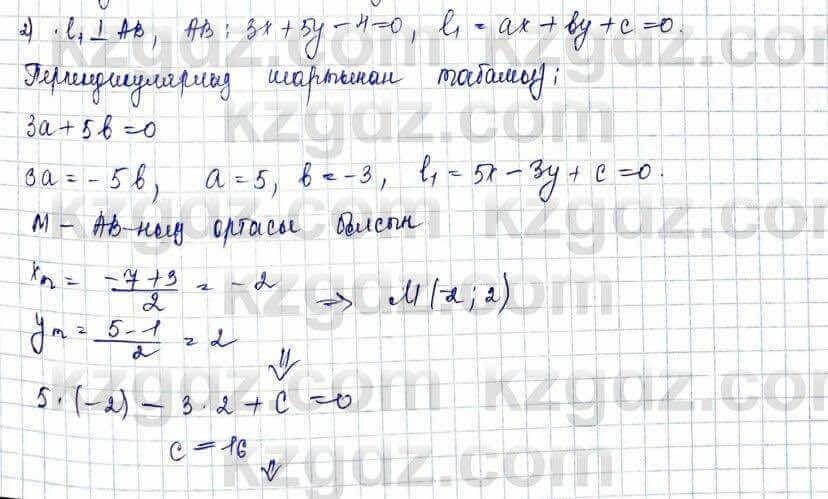 2) l₁ ⊥ AB, AB: 3x + 5y - 4 = 0, l₁ = ax + by + c = 0.
Перпендикулярлық шартынан табамыз;
3a + 5b = 0
3a = -5b, a = 5, b = -3, l₁ = 5x - 3y + c = 0.
M - AB-ның ортасы болсын
xₘ = (-7+3)/2 = -2
⇒ M(-2; 2)
yₘ = (5-1)/2 = 2
⇓
5·(-2) - 3·2 + C = 0
c = 16
⇓
kzgdz.com